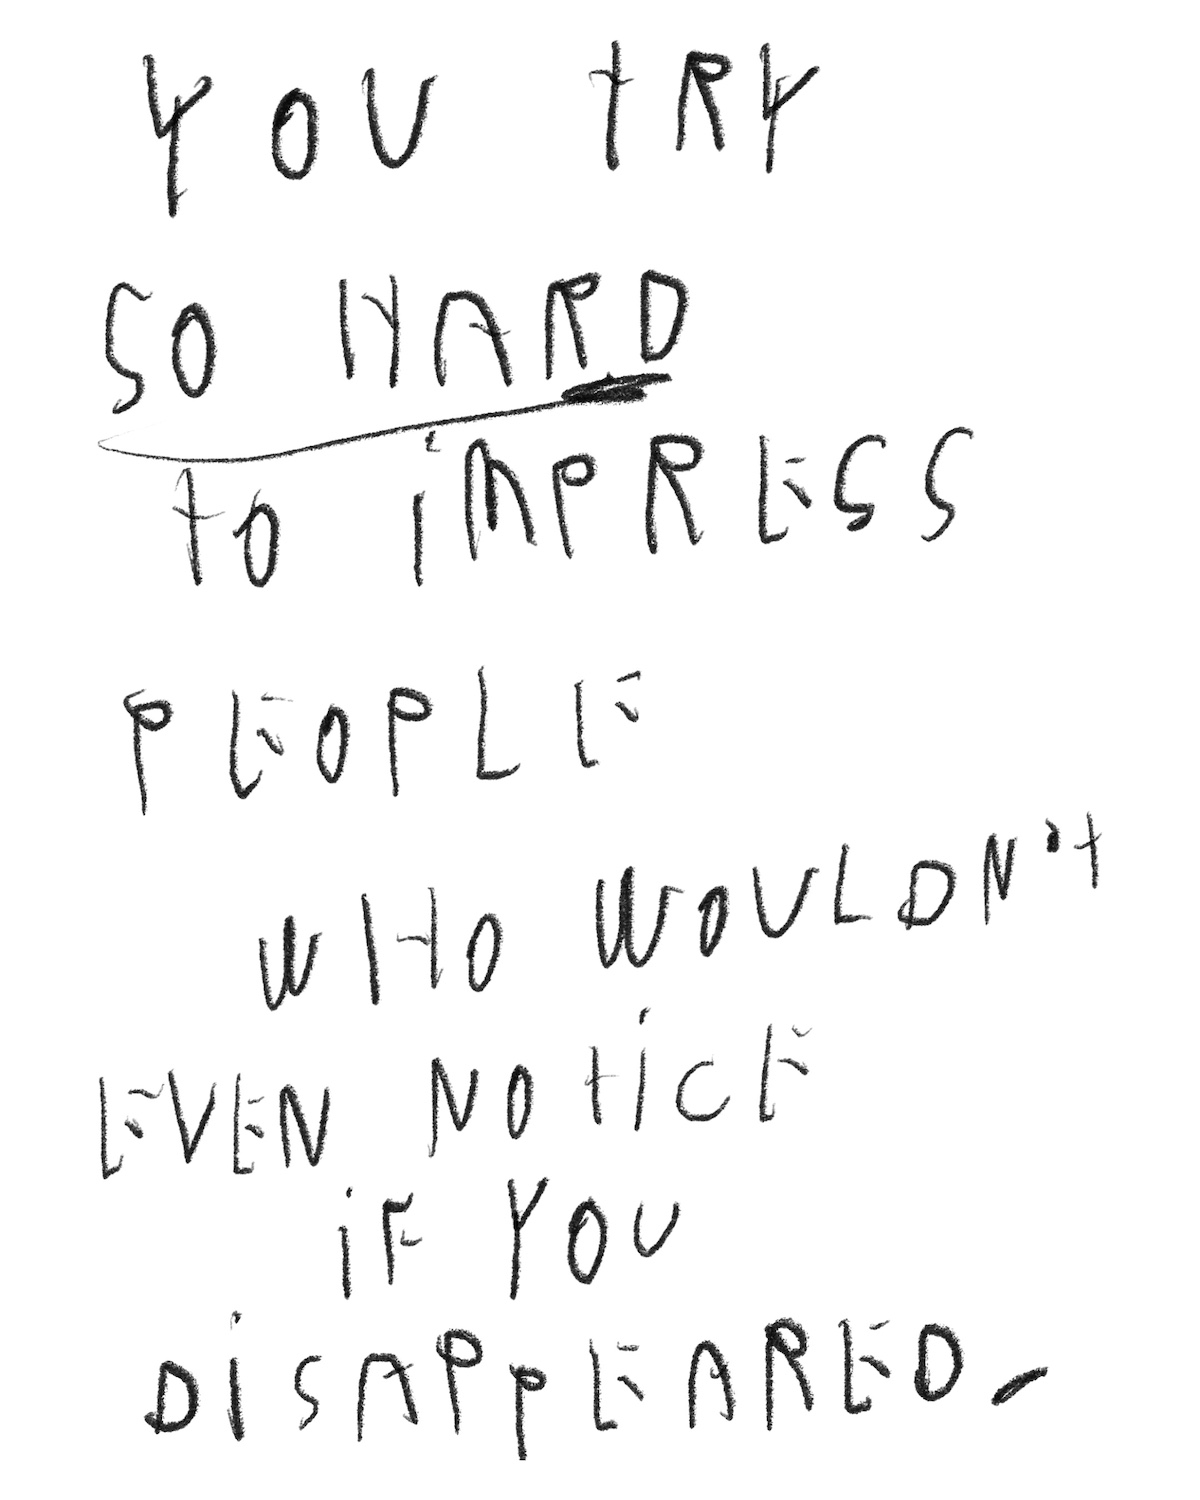 YOU TRY
SO HARD
TO iMPRESS
PEOPLE
WHO WOULDN't
EVEN NOTiCE
iF YOU
DiSAPPEARED.